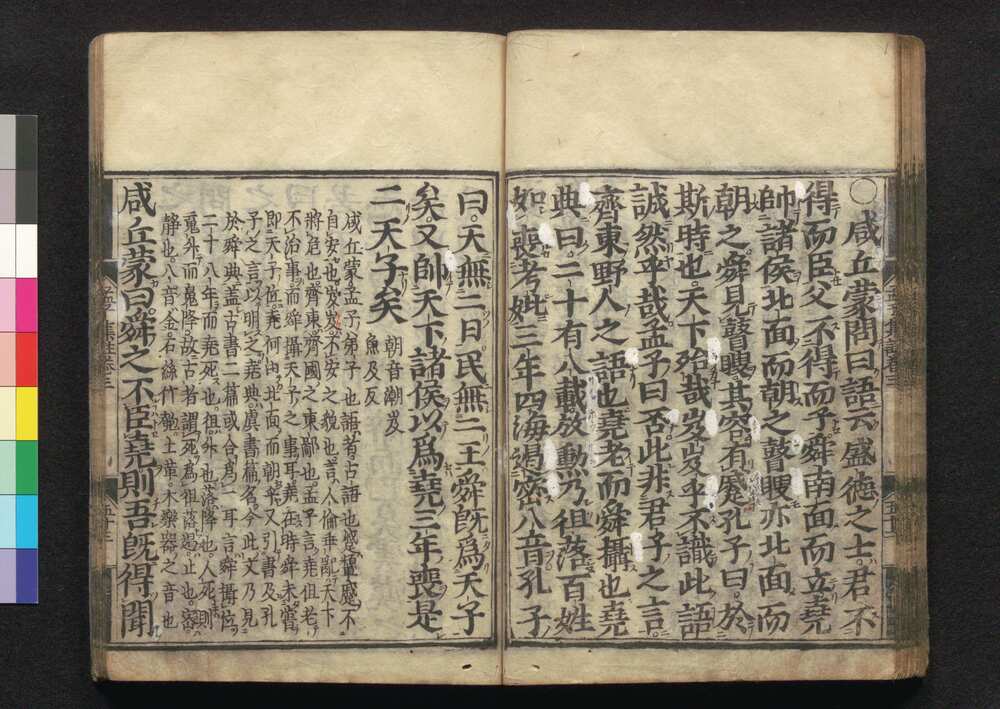 ○咸丘蒙問曰語云盛德之士君不
得而臣父不得而子舜南面而立堯
帥諸侯北面而朝之瞽瞍亦北面而
朝之舜見瞽瞍其容有蹙孔子曰於
斯時也天下殆哉岌岌乎不識此語
誠然乎哉孟子曰否此非君子之言
齊東野人之語也堯老而舜攝也堯
典曰二十有八載放勳乃徂落百姓
如喪考妣三年四海遏密八音孔子
曰天無二日民無二王舜旣爲天子
矣又帥天下諸侯以爲堯三年喪是
二天子矣
朝音潮岌
魚及反
咸丘蒙孟子弟子也語者古語也蹙顰蹙不
自安也岌岌不安之貌也言人倫乖亂天下
將危也齊東齊國之東鄙也孟子言堯但老
不治事而舜攝天子之事耳堯在時舜未嘗
即天子位堯何由北面而朝乎又引書及孔
子之言以明之堯典虞書篇名今此文乃見
於舜典蓋古書二篇或合爲一耳言舜攝位
二十八年而堯死也徂升也落降也人死則
魂升而魄降故古者謂死爲徂落遏止也密
靜也八音金石絲竹匏土革木樂器之音也
咸丘蒙曰舜之不臣堯則吾旣得聞